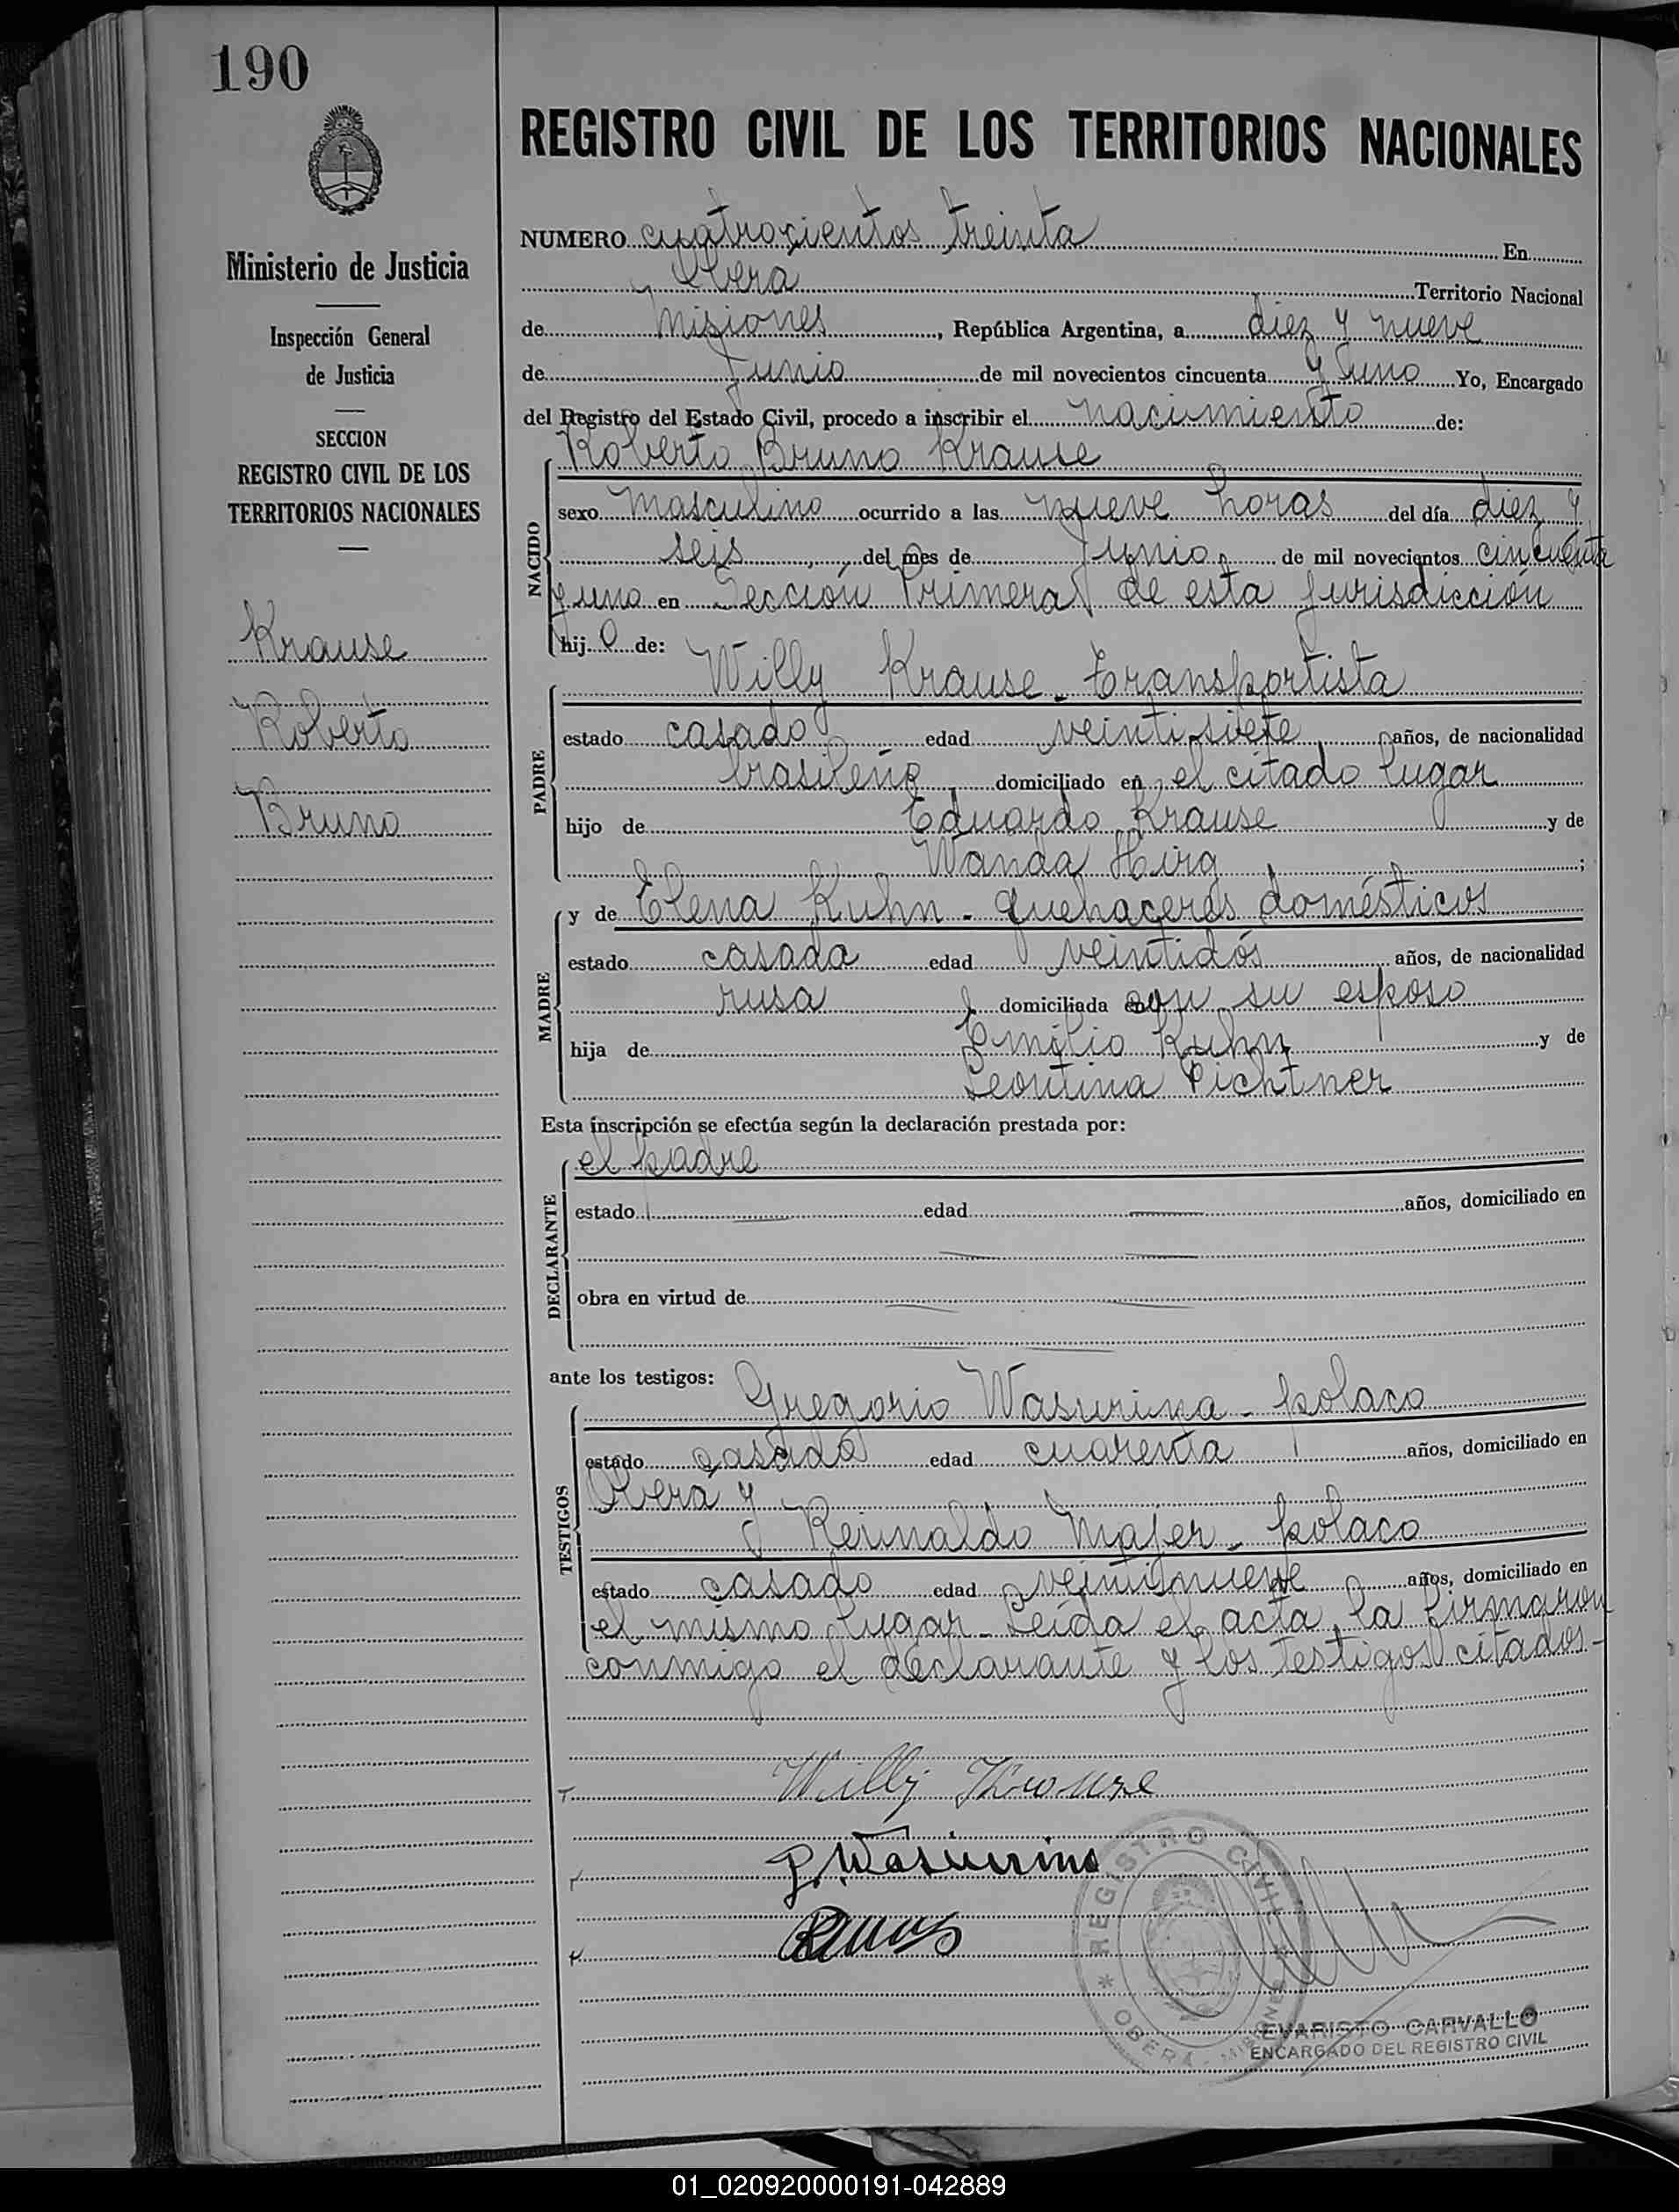 190
Ministerio de Justicia
Inspección General
de Justicia
SECCION
REGISTRO CIVIL DE LOS
TERRITORIOS NACIONALES
Krause
Roberto
Bruno
REGISTRO CIVIL DE LOS TERRITORIOS NACIONALES
NUMERO cuatrocientos treinta En
Oberá Territorio Nacional
de Misiones, República Argentina, a diez y nueve
de Junio de mil novecientos cincuenta y uno Yo, Encargado
del Registro del Estado Civil, procedo a inscribir el nacimiento de:
Roberto Bruno Krause
NACIDO
sexo masculino ocurrido a las nueve horas del día diez y
seis del mes de Junio de mil novecientos cincuenta
y uno en Sección Primera de esta jurisdicción
hijo de:
PADRE
Willy Krause - transportista
estado casado edad veintisiete años, de nacionalidad
brasileña domiciliado en el citado lugar
hijo de Eduardo Krause y de
Wanda Hirg;
MADRE
y de Elena Kuhn - quehaceres domésticos
estado casada edad veintidós años, de nacionalidad
rusa domiciliada con su esposo
hija de Emilio Kuhn y de
Leontina Pichtner
Esta inscripción se efectúa según la declaración prestada por:
DECLARANTE
el padre
estado edad años, domiciliado en
obra en virtud de
ante los testigos:
TESTIGOS
Gregorio Wasurina - polaco
estado casado edad cuarenta años, domiciliado en
Oberá y
Reinaldo Majer - polaco
estado casado edad veintinueve años, domiciliado en
el mismo lugar - Leída el acta, la firmaron
conmigo el declarante y los testigos citados -
Willy Krause
REGISTRO CIVIL
* OBERÁ - MISIONES
EVARISTO CARVALLO
ENCARGADO DEL REGISTRO CIVIL
01_020920000191-042889